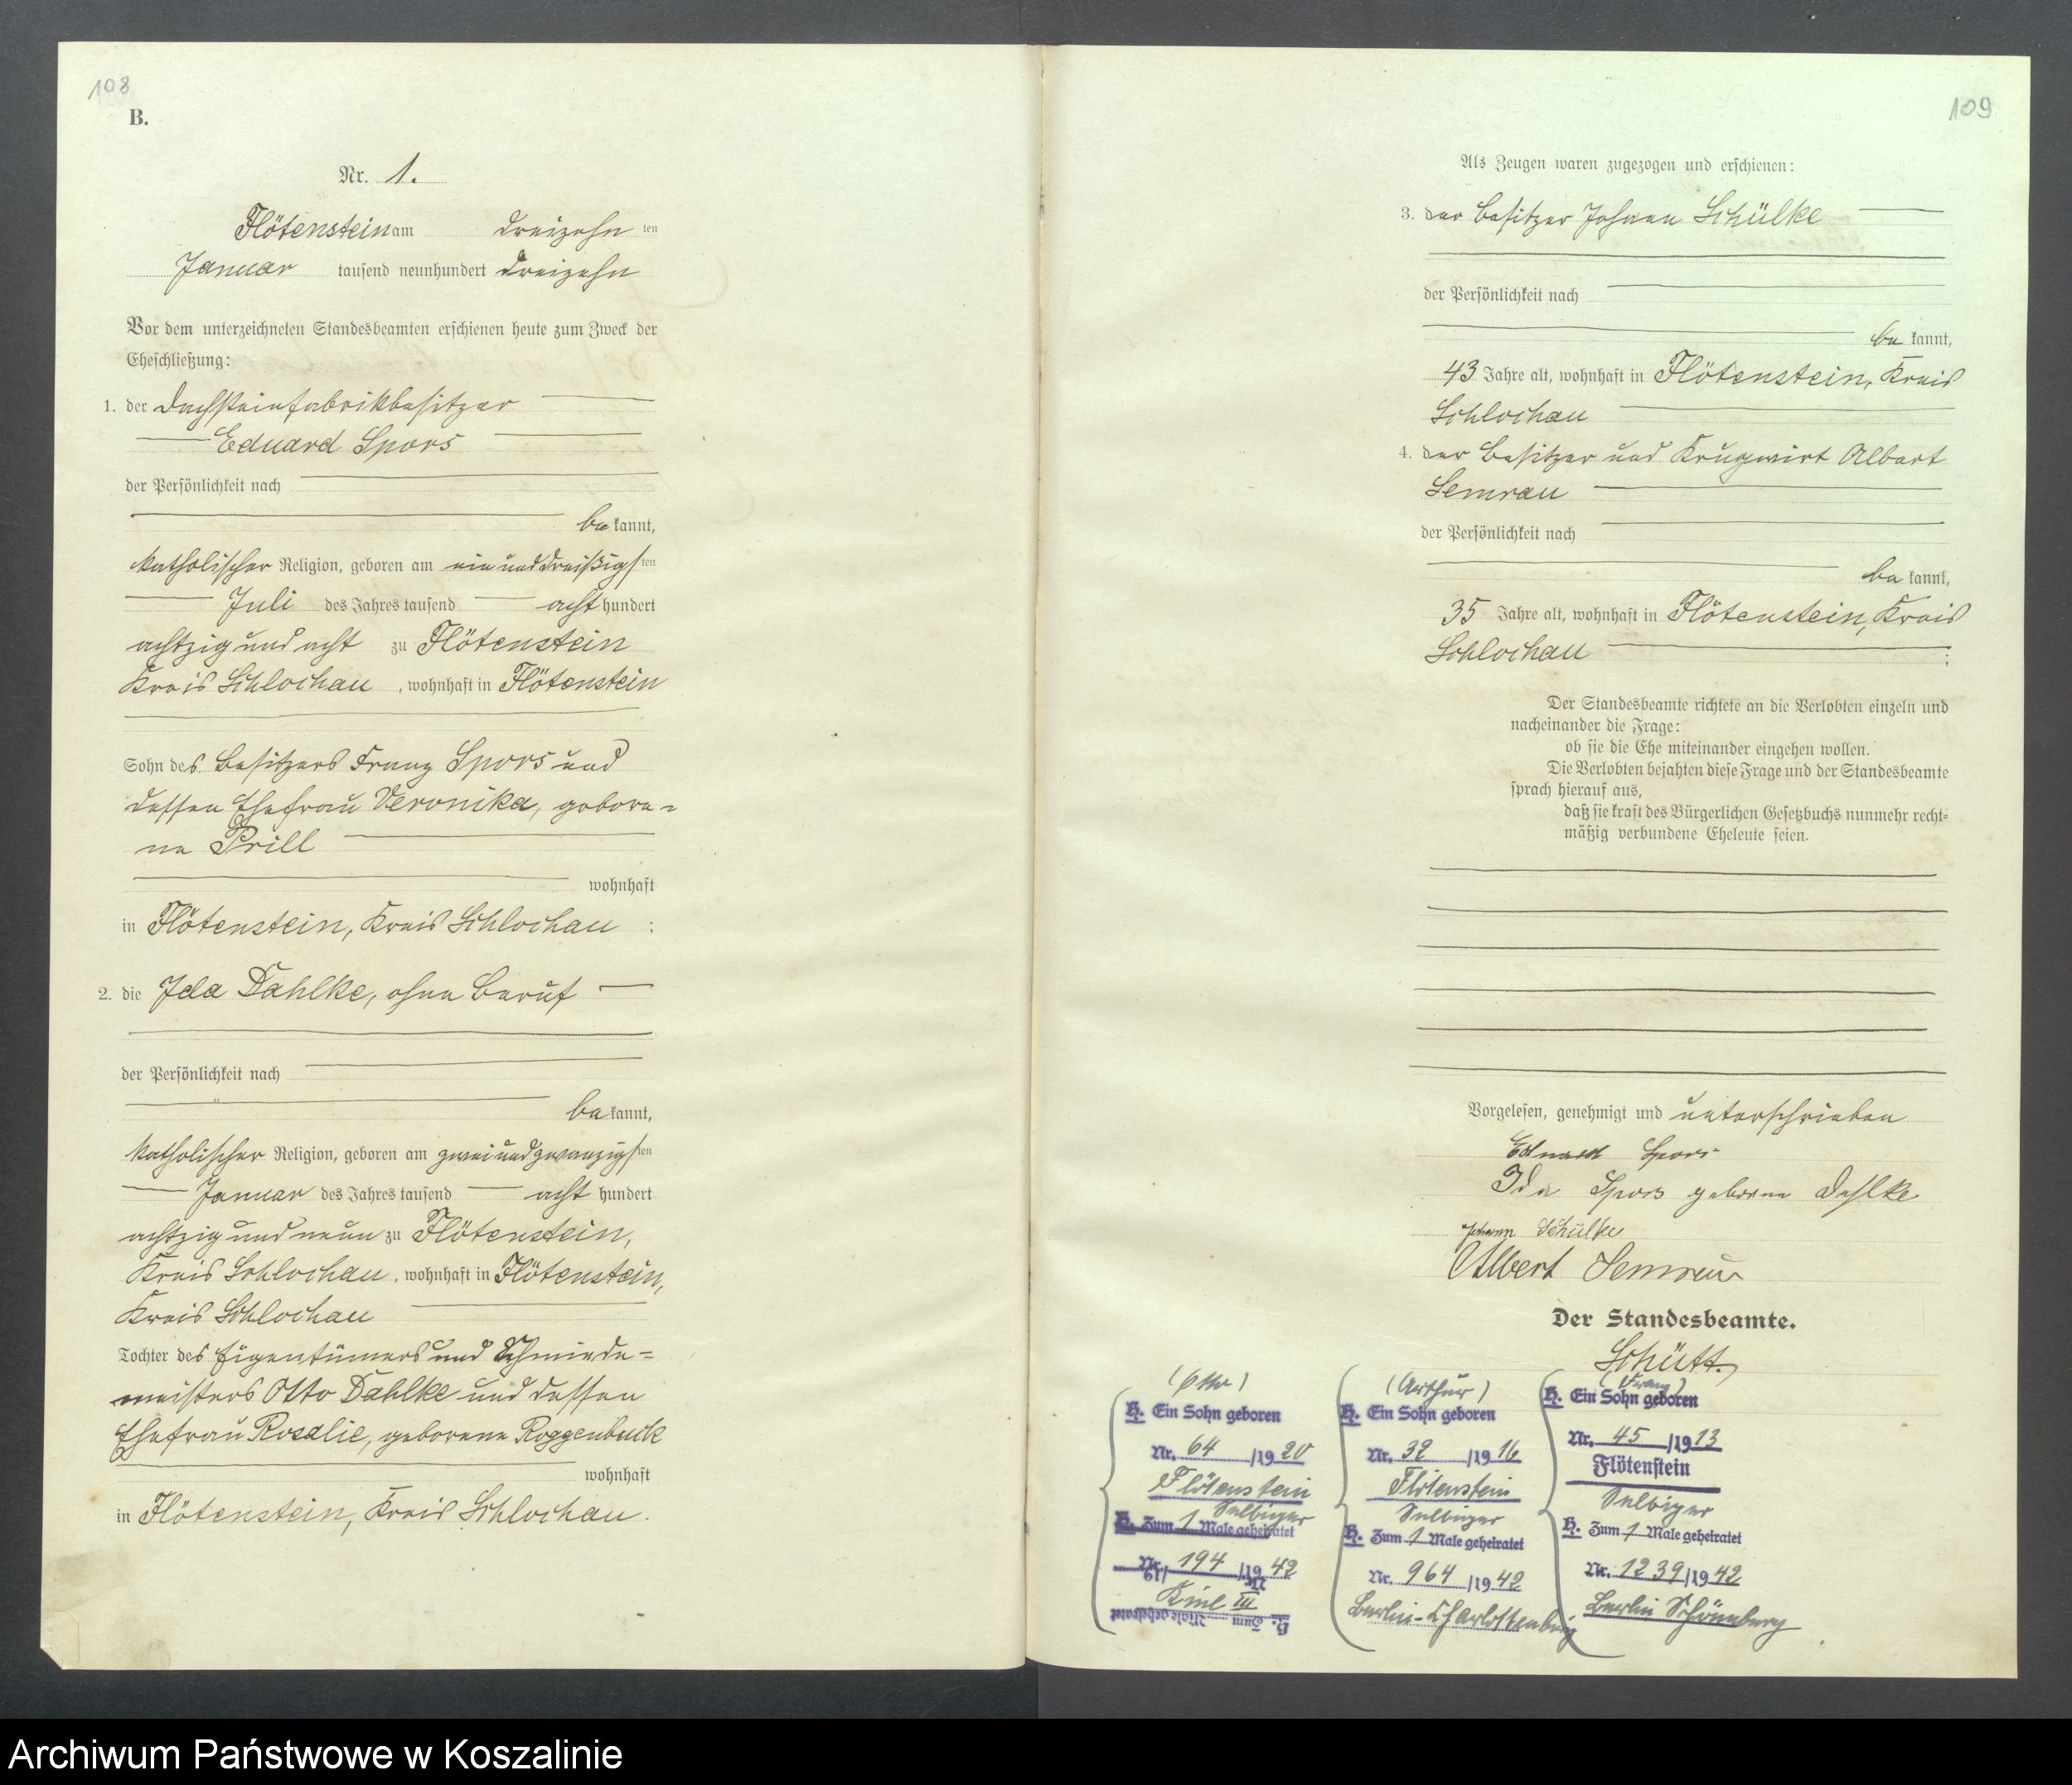 108
B.
Nr. 1.
Flötenstein am dreizehn ten
Januar tausend neunhundert dreizehn
Vor dem unterzeichneten Standesbeamten erschienen heute zum Zweck der
Eheschließung:
1. der Dachsteinfabrikbesitzer
Eduard Spors
der Persönlichkeit nach
be kannt,
katholischer Religion, geboren am ein und dreißigs ten
Juli des Jahres tausend acht hundert
achtzig und acht zu Flötenstein
Kreis Schlochau, wohnhaft in Flötenstein
Sohn des Besitzers Franz Spors und
dessen Ehefrau Veronika, gebore=
ne Prill
wohnhaft
in Flötenstein, Kreis Schlochau ;
2. die Ida Dahlke, ohne Beruf
der Persönlichkeit nach
be kannt,
katholischer Religion, geboren am zwei und zwanzigs ten
Januar des Jahres tausend acht hundert
achtzig und neun zu Flötenstein,
Kreis Schlochau, wohnhaft in Flötenstein,
Kreis Schlochau
Tochter des Eigentümers und Schmiede=
meisters Otto Dahlke und dessen
Ehefrau Rosalie, geborene Roggenbuck
wohnhaft
in Flötenstein, Kreis Schlochau.
109
Als Zeugen waren zugezogen und erschienen:
3. der Besitzer Johann Schülke
der Persönlichkeit nach
be kannt,
43 Jahre alt, wohnhaft in Flötenstein, Kreis
Schlochau
4. der Besitzer und Krugwirt Albert
Semrau
der Persönlichkeit nach
be kannt,
35 Jahre alt, wohnhaft in Flötenstein, Kreis
Schlochau ;
Der Standesbeamte richtete an die Verlobten einzeln und
nacheinander die Frage:
ob sie die Ehe miteinander eingehen wollen.
Die Verlobten bejahten diese Frage und der Standesbeamte
sprach hierauf aus,
daß sie kraft des Bürgerlichen Gesetzbuchs nunmehr recht=
mäßig verbundene Eheleute seien.
Vorgelesen, genehmigt und unterschrieben
Eduard Spors
Ida Spors geborne Dahlke
Johann Schülke
Albert Semrau
Der Standesbeamte.
Schütt.
(Otto)
H. Ein Sohn geboren
Nr. 64 /1920
Flötenstein
Selbiger
H. Zum 1 Male geheiratet
Nr. 194 /1942
Kiel III
H. Zum Male geheiratet
(Arthur)
H. Ein Sohn geboren
Nr. 32 /1916
Flötenstein
Selbiger
H. Zum 1 Male geheiratet
Nr. 964 /1942
Berlin-Charlottenburg
(Franz)
H. Ein Sohn geboren
Nr. 45 /1913
Flötenstein
Selbiger
H. Zum 1 Male geheiratet
Nr. 1239/1942
Berlin Schöneberg
Archiwum Państwowe w Koszalinie